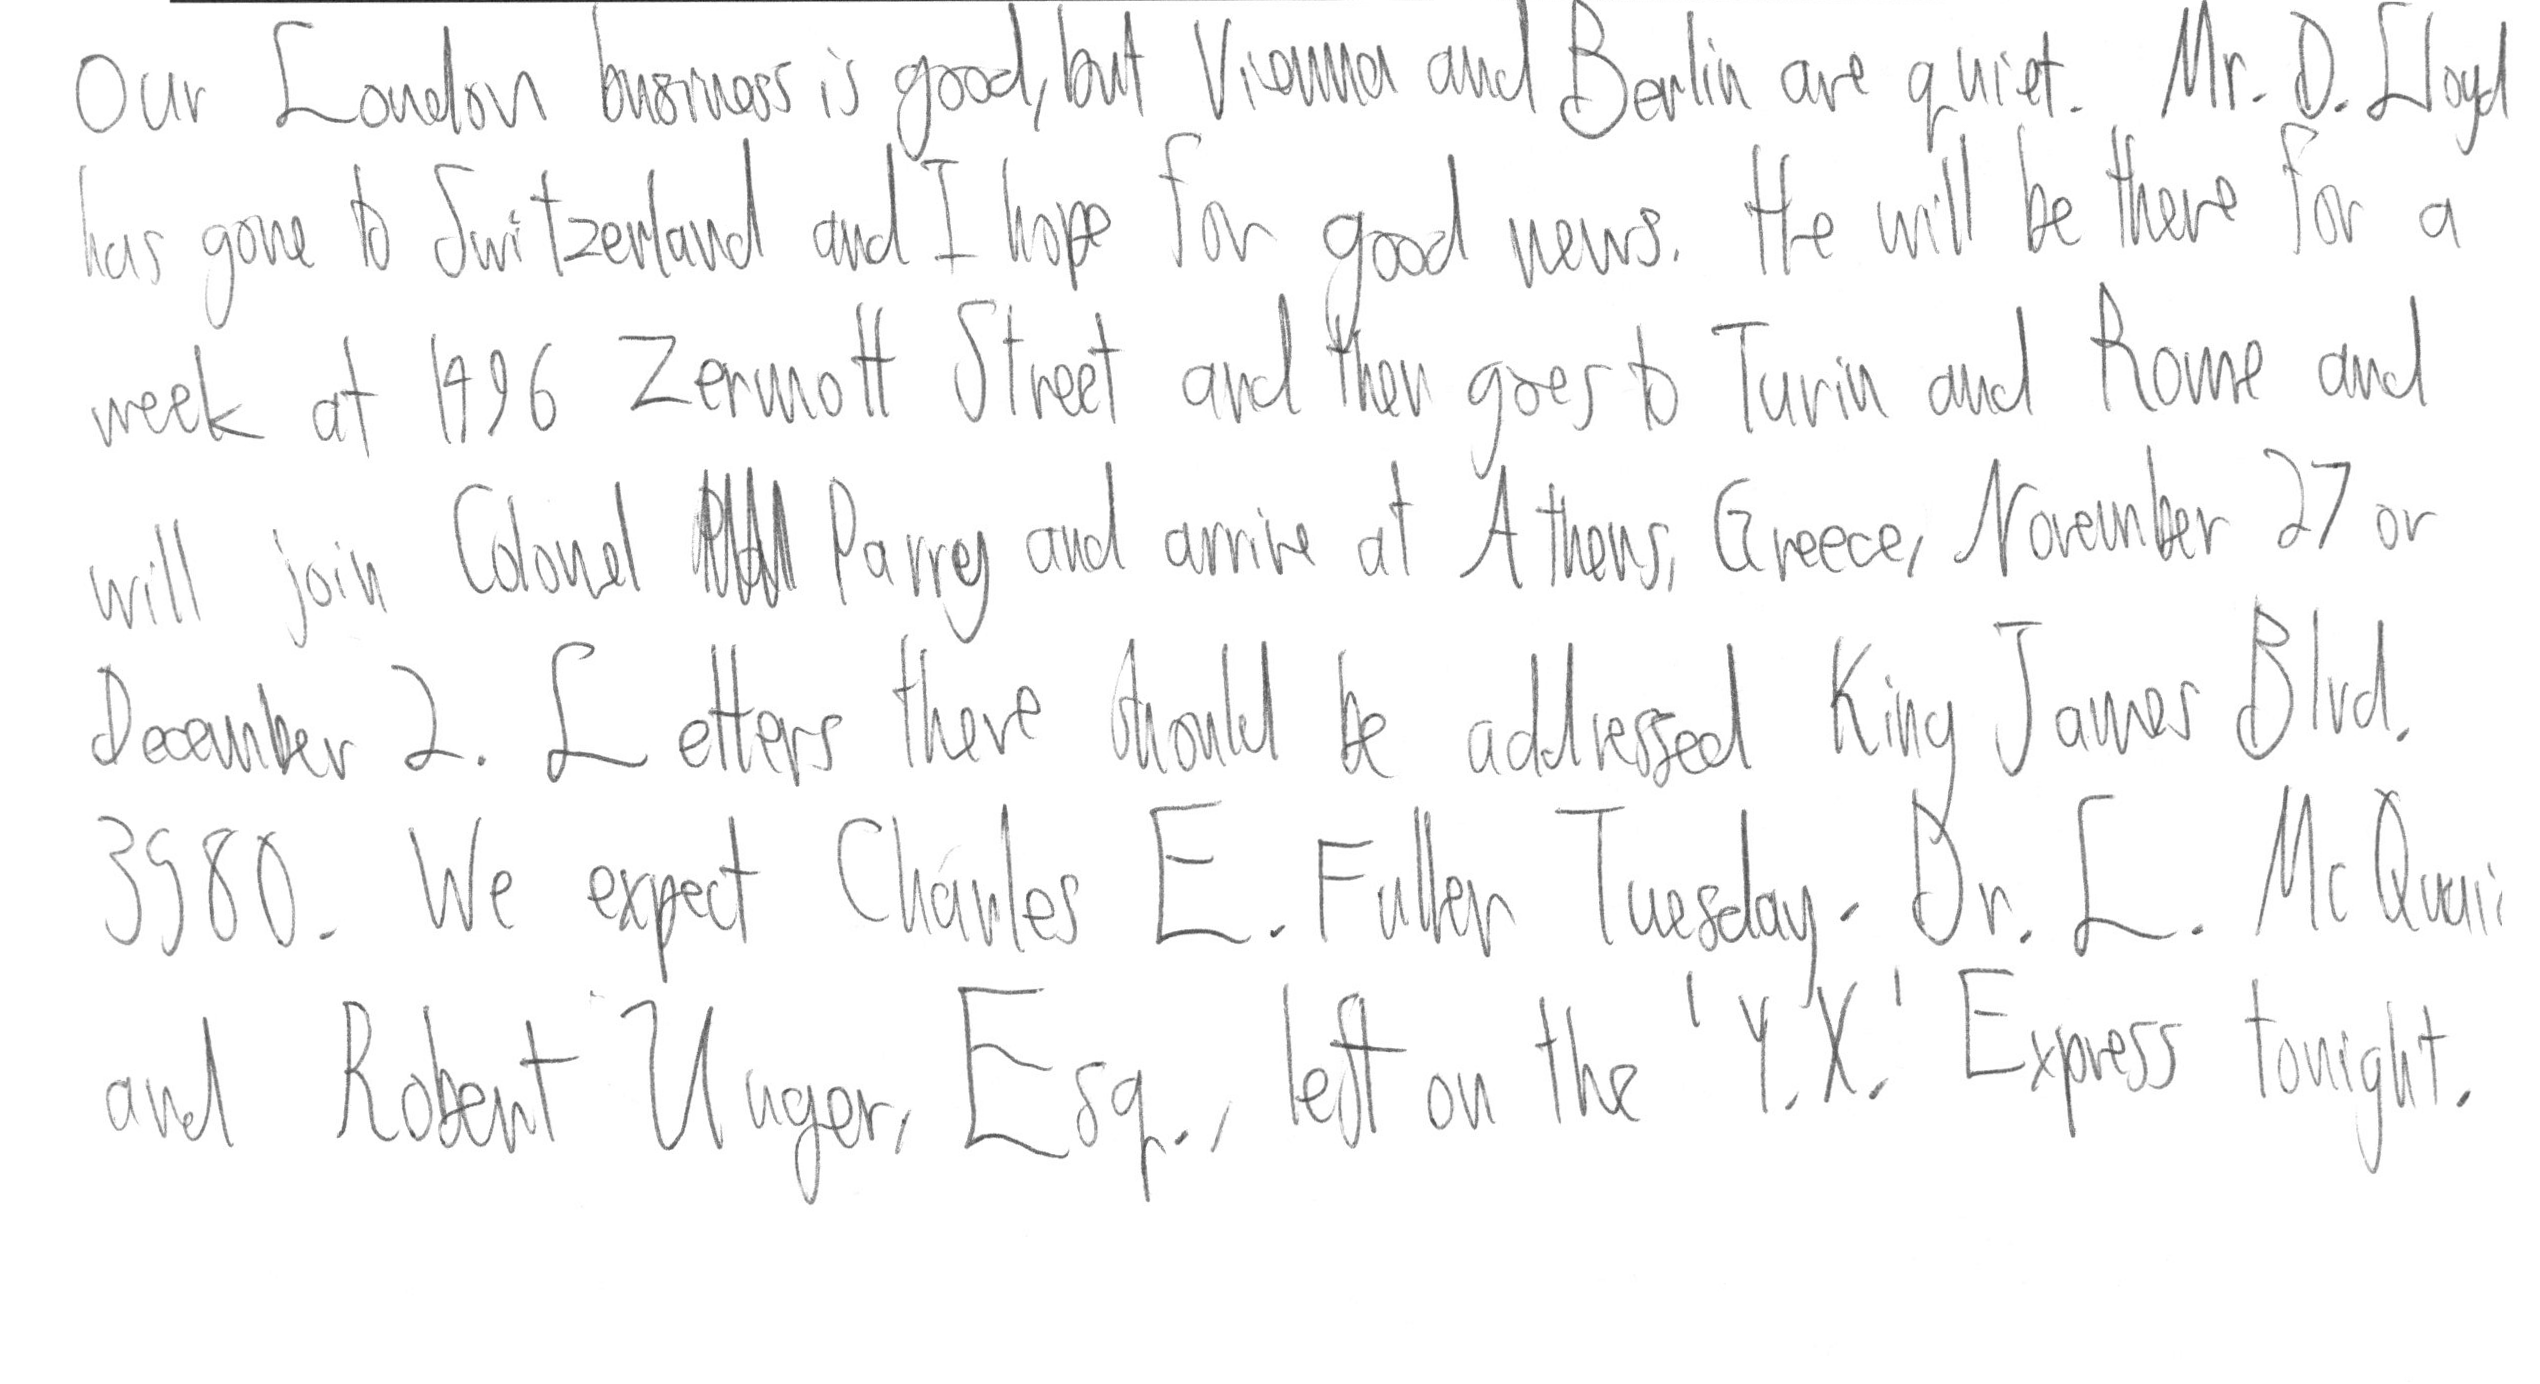 Our London business is good, but Vienna and Berlin are quiet. Mr. D. Lloyd
has gone to Switzerland and I hope for good news. He will be there for a
week at 1496 Zermott Street and then goes to Turin and Rome and
will join Colonel Parry and arrive at Athens, Greece, November 27 or
December 2. Letters there should be addressed King James Blvd.
3580. We expect Charles E. Fuller Tuesday. Dr. L. McQuai
and Robert Unger, Esq., left on the 'Y.X.' Express tonight.